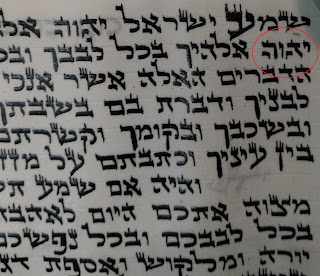 שמע ישראל יהוה
יהוה אלהיך בכל לבבך
הדברים האלה אשר אנכי
לבניך ודברת בם בשבתך
ובשכבך ובקומך וקשרתם
בין עיניך וכתבתם על
והיה אם שמע
מצוה אתכם היום לאהבה
בכל לבבכם ובכל נפשכם
יורה ומלקוש ואספת